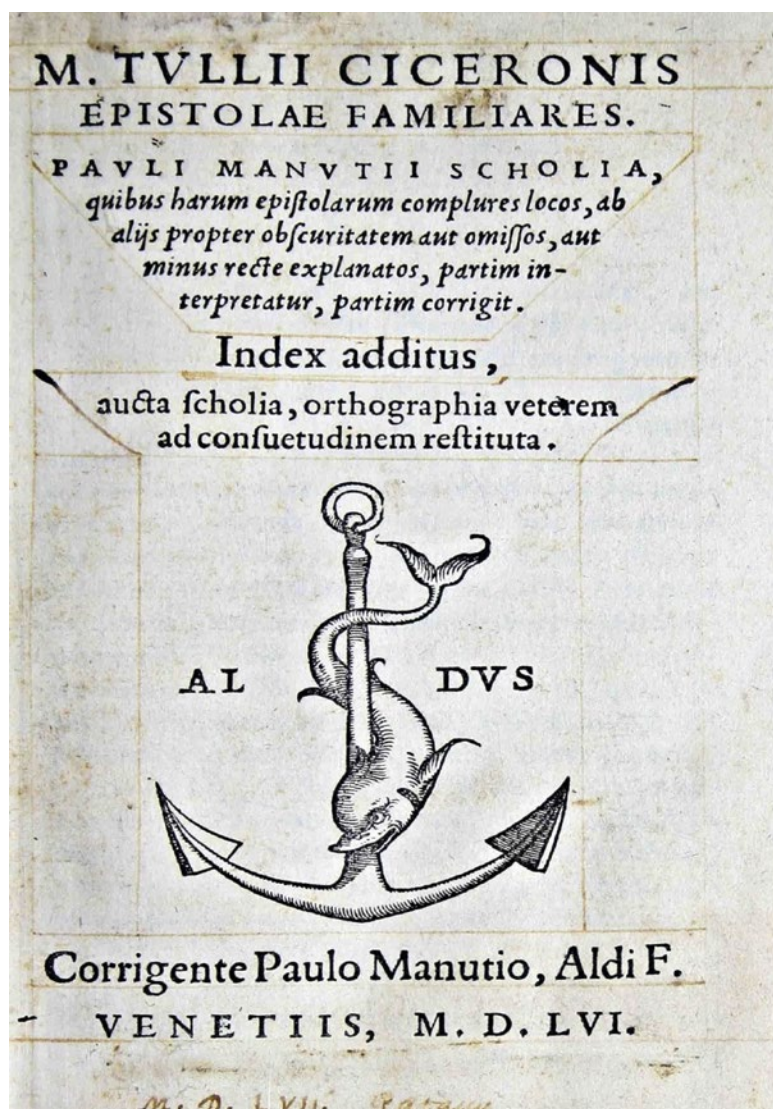 M. TVLLII CICERONIS
EPISTOLAE FAMILIARES.
PAVLI MANVTII SCHOLIA,
quibus harum epiſtolarum complures locos, ab
alijs propter obſcuritatem aut omiſſos, aut
minus recte explanatos, partim in-
terpretatur, partim corrigit.
Index additus,
aucta ſcholia, orthographia veterem
ad conſuetudinem reſtituta.
AL DVS
Corrigente Paulo Manutio, Aldi F.
VENETIIS, M. D. LVI.